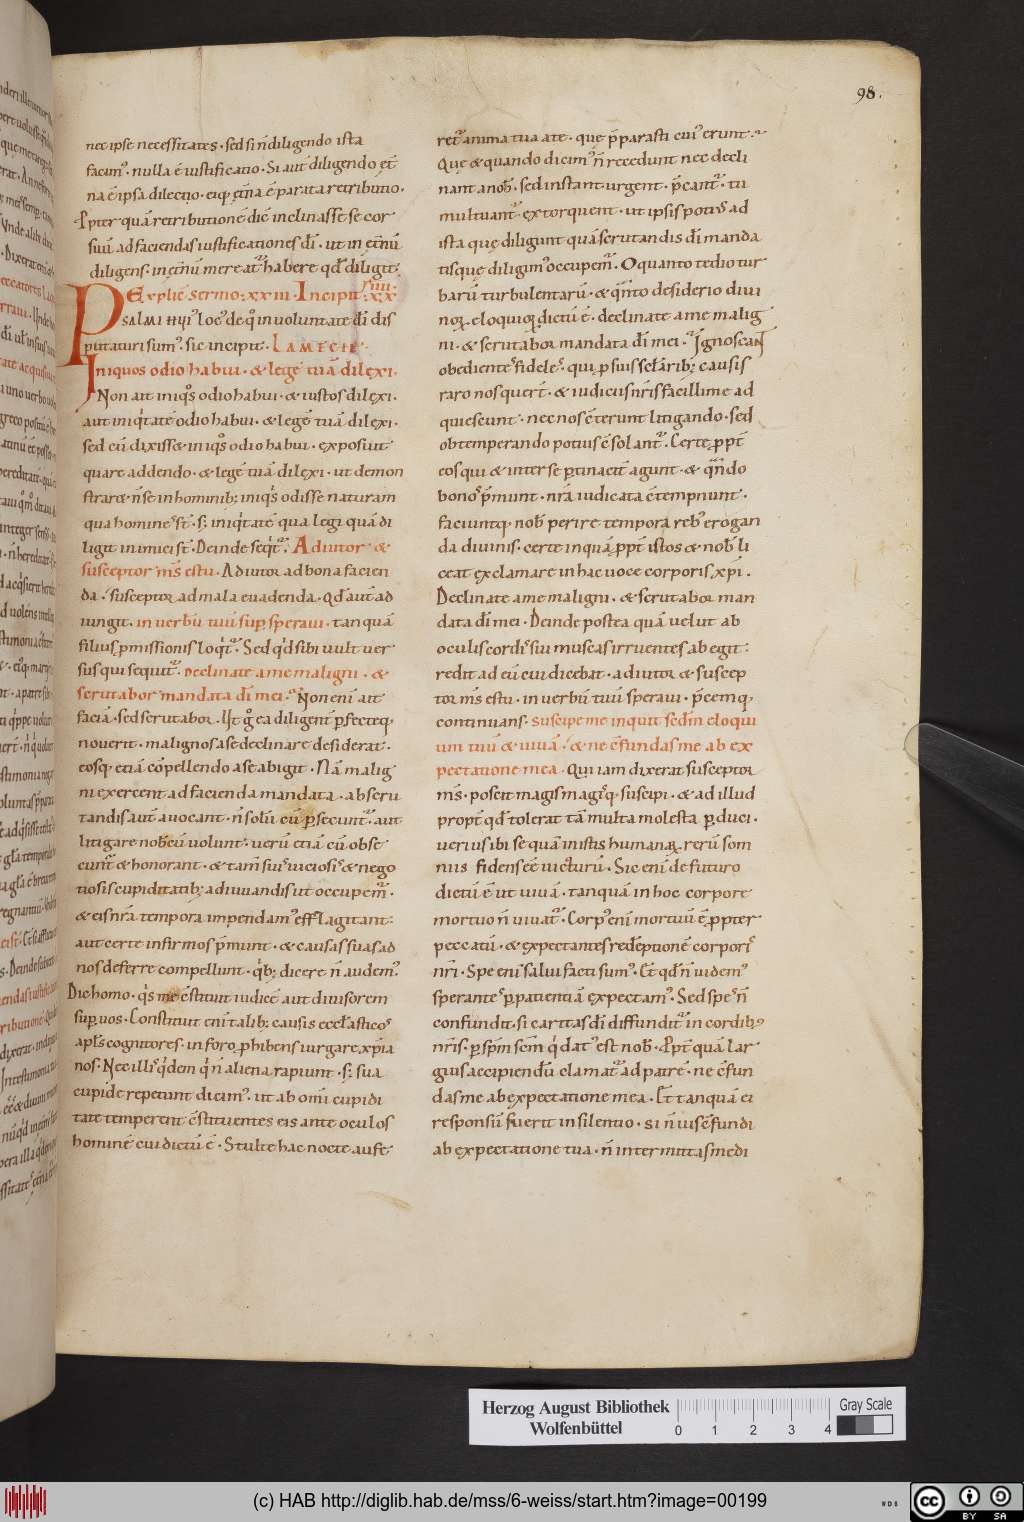 98.
nec ipse necessitates · sed si n̄ diligendo ista
facim᾿ · nulla ē iustificatio · Si aut̄ diligendo et̄
na ē ipsa dilectio · eiq; et̄na ē parata retributio ·
Ppter quā retributionē dic̄ inclinasse se cor
suū ad faciendas iustificationes dī · ut in et̄nū
diligens · in et̄nū mereat᷑ habere qd̄ diligit ·
Explic̄ sermo · xxiii · Incipit · xx
iiii ·
PSALMI hui᾿ loc᾿ de q̊ in voluntate dī dis
putaturi sum᾿ · sic incipit · LAMECH ·
Iniquos odio habui · & legē tuā dilexi ·
Non ait iniq̊s odio habui · & iustos dilexi ·
aut iniq̇tatē odio habui · & legē tuā dilexi ·
sed cū dixisset iniq̊s odio habui · exposuit
quare addendo · & legē tuā dilexi · ut demon
straret n̄ se in hominib; iniq̇s odisse naturam
qua homines s̄t · s; iniq̇tatē qua legi quā di
ligit inimici s̄t · Deinde seqt᷑ · Adiutor &
susceptor ms̄ es tu · Adiutor ad bona facien
da · susceptor ad mala evadenda · Qd̄ aut̄ ad
iungit · in verbū tuū sup speravi · tanquā
filius pmissionis loqt᷑ · Sed qd̄ sibi vult ver
sus qui sequit᷑ · Declinate a me maligni · &
scrutabor mandata dī mei · Non enī ait
faciā · sed scrutabor · Ut g̊ ea diligent̄ pfecteq;
noverit · malignos a se declinare desiderat ·
eosq; etiā cōpellendo a se abigit · Nā malig
ni exercent ad facienda mandata · ab scru
tandis aut̄ avocant · n̄ solū cū psecunt᷑ · aut
litigare nob̄cū volunt · verū etiā cū obse
cunt᷑ & honorant · & tam̄ suis viciosis & nego
tiosis cupiditatib; adiuvandis ut occupem᷑ ·
& eis nr̄a tempora impendam᾿ efflagitant ·
aut certe infirmos p̄munt · & causas suas ad
nos deferre compellunt · q̇b; dicere n̄ audem᾿ ·
Dic homo · q̇s me cstituit iudicē aut divisorem
sup vos · Constituit enī talib; causis eccl̄asticos
apl̄s cognitores · in foro phibens iurgare xp̄ia
nos · Nec illis q̇dem q̇ n̄ aliena rapiunt · s; sua
cupide repetunt dicim᾿ · ut ab omī cupidi
tate temperent cstituentes eis ante oculos
hominē cui dictū ē · Stulte hac nocte aufe
ret᷑ anima tua a te · que p̄parasti cui᾿ erunt ·
Que & quando dicim᾿ n̄ recedunt nec decli
nant a nob̄ · sed instant · urgent · p̄cant᷑ · tu
multuant᷑ · extorquent · ut ipsis potius ad
ista que diligunt quā scrutandis dī manda
tis que diligim᾿ occupem᷑ · O quanto tedio tur
barū turbulentarū · & qn̄to desiderio divi
norū eloquiorū dictū ē · declinate a me malig
ni · & scrutabor mandata dī mei · Ignoscant
obedientes fideles · qui p suis sclarib; causis
raro nos querunt · & iudiciis nr̄is facillime ad
quiescunt · nec nos cterunt litigando · sed
obtemperando potius csolant᷑ · Certe ppt̄
eos qui & inter se ptinacit̄ agunt · & qn̄do
bonos p̄munt · nr̄a iudicata ctempnunt ·
faciuntq; nob̄ perire tempora reb᾿ erogan
da divinis · certe inquā ppt̄ istos & nob̄ li
ceat exclamare in hac voce corporis xp̄i ·
Declinate a me maligni · & scrutabor man
data dī mei · Deinde postea quā velut ab
oculis cordis sui muscas irruentes abegit ·
redit ad eū cui dicebat · adiutor & suscep
tor ms̄ es tu · in verbū tuū speravi · p̄cemq;
continuans · suscipe me inquit sedm̄ eloqui
um tuū & vivā · & ne cfundas me ab ex
pectatione mea · Qui iam dixerat susceptor
ms̄ · poscit magis magisq; suscipi · & ad illud
propt̄ qd̄ tolerat tā multa molesta pduci ·
verius ibi se quā in istis humanarū rerū som
niis fidens ēē victurū · Sic enī de futuro
dictū ē ut vivā · tanquā in hoc corpore
mortuo n̄ vivat᷑ · Corp᾿ enī mortuū ē ppter
peccatū · & expectantes redēptionē corporis
nr̄i · Spe enī salvi facti sum᾿ · Et qd̄ n̄ videm᾿
sperantes p patientiā expectam᾿ · Sed spes n̄
confundit · si caritas dī diffundit᷑ in cordib᾿
nr̄is · p spm̄ scm̄ q̇ dat᾿ est nob̄ · Ppt̄ quā lar
gius accipiendū clamat᷑ ad patrē · ne cfun
das me ab expectatione mea · Et tanquā ei
responsū fuerit in silentio · si n̄ vis cfundi
ab expectatione tua · n̄ intermittas medi
Herzog August Bibliothek
Wolfenbüttel
0 1 2 3 4
Gray Scale
(c) HAB http://diglib.hab.de/mss/6-weiss/start.htm?image=00199
WDB
cc BY SA